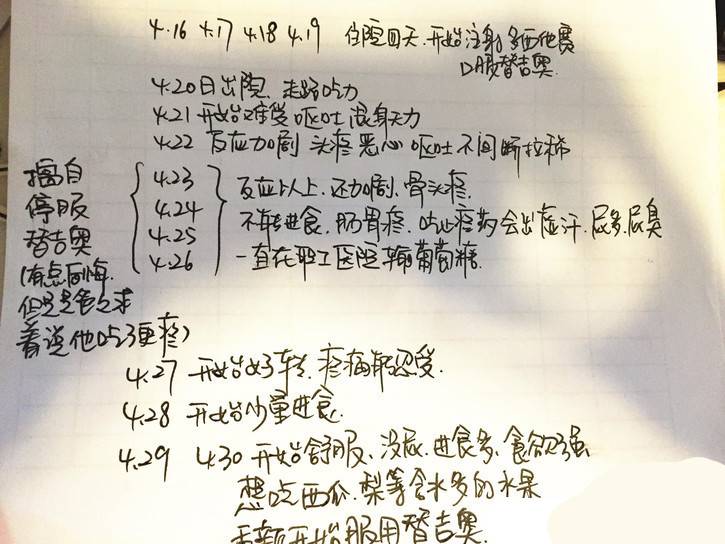 4.16 4.17 4.18 4.19 住院四天.开始注射多西他赛
口服替吉奥.
4.20日出院,走路吃力
4.21 开始难受 呕吐 混身无力
4.22 反应加剧 头疼 恶心 呕吐 不间断拉稀
擅自
停服
替吉奥
(有点后悔.
但是
看说他吃了更疼)
4.23
4.24
4.25
4.26
反应以上,还加剧,骨头疼.
不能进食,肠胃疼,吃止疼药会出虚汗,尿多,尿臭
一直在职工医院输葡萄糖.
4.27 开始好转,疼痛能忍受.
4.28 开始少量进食.
4.29 4.30 开始舒服、没尿,进食多,食欲强
想吃西瓜.梨等含水多的水果
开始服用替吉奥.